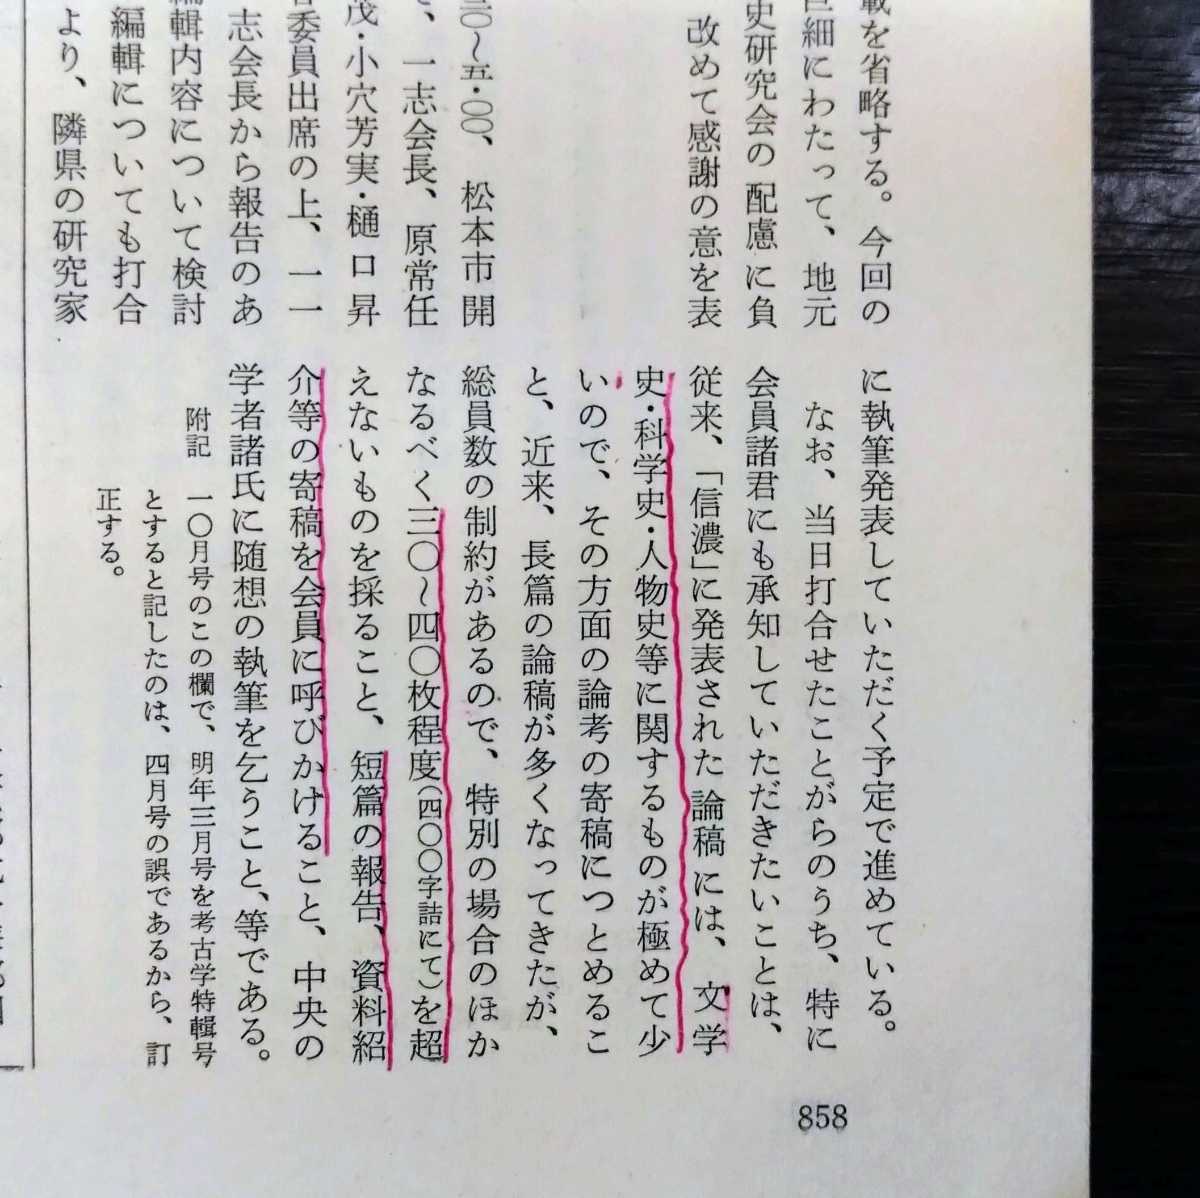 載を省略する。今回の
巨細にわたって、地元
史研究会の配慮に負
改めて感謝の意を表
三〇〜五・〇〇、松本市開
、一志会長、原常任
茂・小穴芳実・樋口昇
委員出席の上、一一
志会長から報告のあ
編輯内容について検討
編輯についても打合
より、隣県の研究家
に執筆発表していただく予定で進めている。
なお、当日打合せたことがらのうち、特に
会員諸君にも承知していただきたいことは、
従来、「信濃」に発表された論稿には、文学
史・科学史・人物史等に関するものが極めて少
いので、その方面の論考の寄稿につとめるこ
と、近来、長篇の論稿が多くなってきたが、
総員数の制約があるので、特別の場合のほか
なるべく三〇〜四〇枚程度(四〇〇字詰にて)を超
えないものを採ること、短篇の報告、資料紹
介等の寄稿を会員に呼びかけること、中央の
学者諸氏に随想の執筆を乞うこと、等である。
附記　一〇月号のこの欄で、明年三月号を考古学特輯号
とすると記したのは、四月号の誤であるから、訂
正する。
858